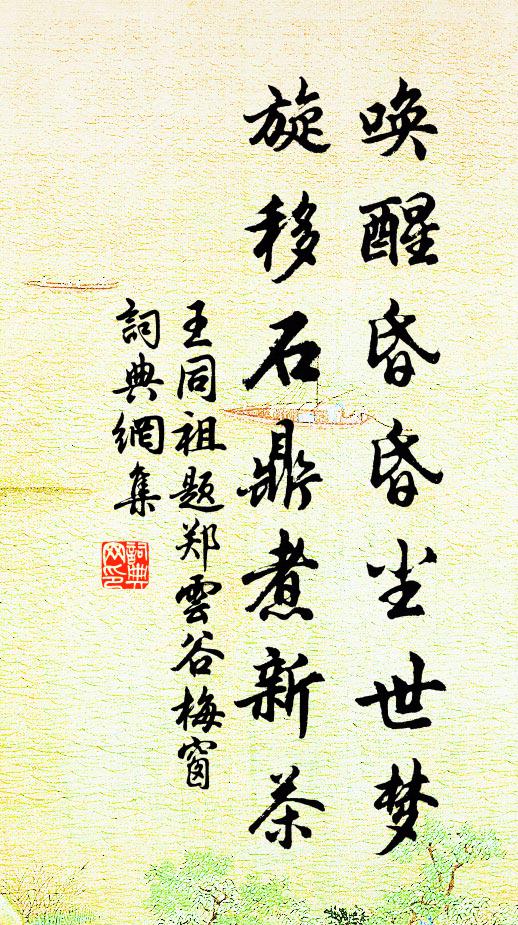 唤醒昏昏尘世梦
旋移石鼎煮新茶
王同祖题郑雲谷梅窗
詞典網集
詞典
网印